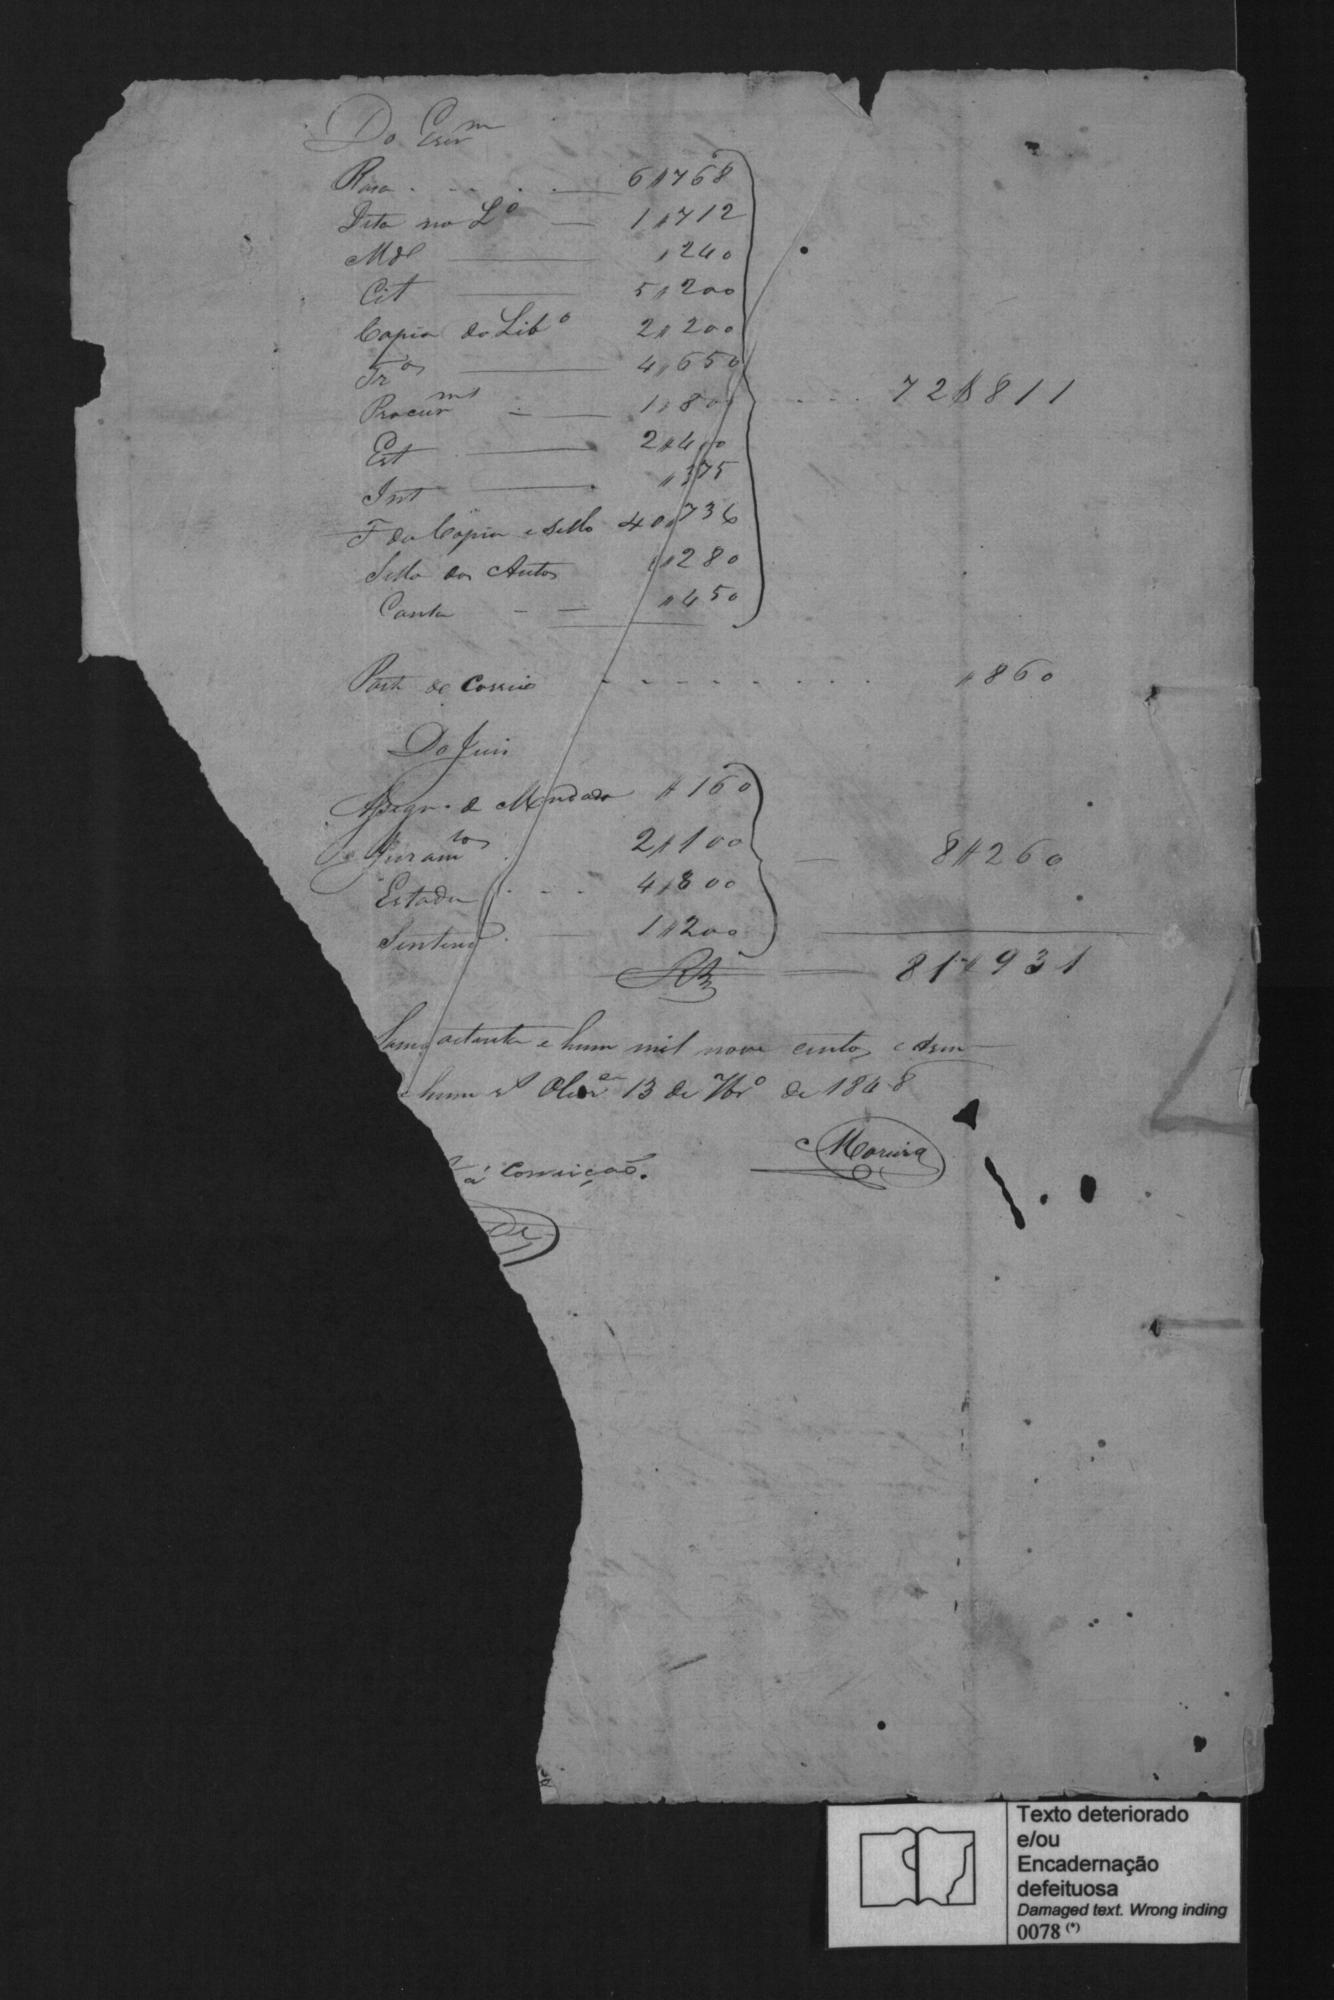 Do Escrm
Rasa . . . . . — 6$768
Dita no Lo — 1$712
Mdo — $240
Cit — 5$200
Copia do Libo 2$200
Tros — 4$650
Procurms — 1$800
Est — 2$400
Int — $375
72$811
F da Copia e Sello 40$736
Sello dos Autos 280
Conta — $450
Port de Correio $860
Do Juis
Assign. de Mandado $160
Juramtos 2$100
8$260
Estada . . . 4$800
Sentenç — 1$200
Rs — 81$931
Soma oitenta e hum mil nove centos e trin
e hum rs 13 de 7bro de 1848
Moreira
á Correição.
de
Texto deteriorado
e/ou
Encadernação
defeituosa
Damaged text. Wrong inding
0078 (*)